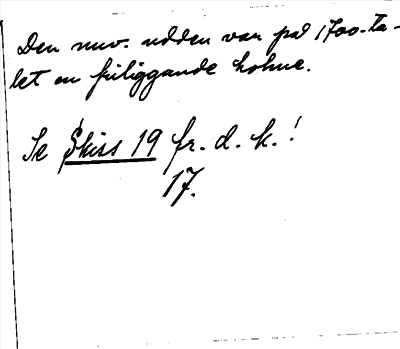 Den nuv. udden var på 1700-ta-
let en friliggande holme.
Se Skiss 19 fr. d. k.!
17.